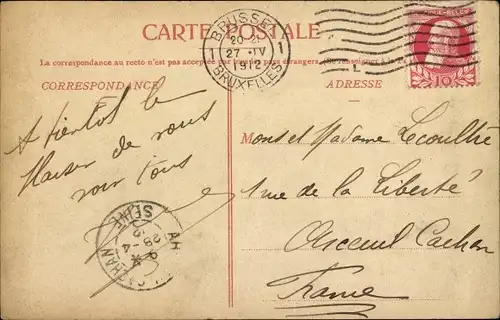 CARTE POSTALE
BRUSSEL
1 20- 1
27 IV
1912
BRUXELLES
10
La correspondance au recto n'est pas acceptée par les pays étrangers. (Se renseigner à la
CORRESPONDANCE
ADRESSE
A bientôt le
Plaisir de vous
voir tous
Mons et Madame Lecoultre
1 rue de la Liberté
Arceuil Cachan
France
CACHAN
SEINE